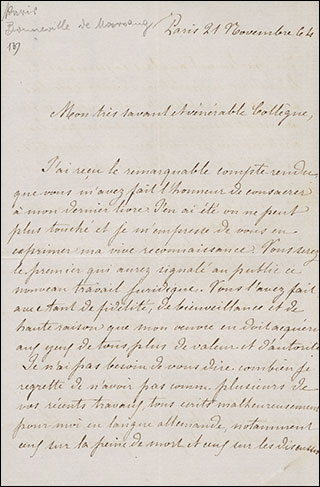 Paris
Bonneville de Marsangy
Paris 21 Novembre 64
Mon très savant et vénérable Collègue,
J'ai reçu le remarquable compte rendu
que vous m'avez fait l'honneur de consacrer
à mon dernier livre. J'en ai été on ne peut
plus touché et je m'empresse de vous en
exprimer ma vive reconnaissance. Vous serez
le premier qui aurez signalé au public ce
nouveau travail juridique. Vous l'avez fait
avec tant de fidélité, de bienveillance et de
haute raison que mon œuvre en doit acquérir
aux yeux de tous plus de valeur et d'autorité.
Je n'ai pas besoin de vous dire combien je
regrette de n'avoir pas comme plusieurs de
vos récents travaux, tous écrits malheureusement
pour moi en langue allemande, notamment
ceux sur la peine de mort et ceux sur les